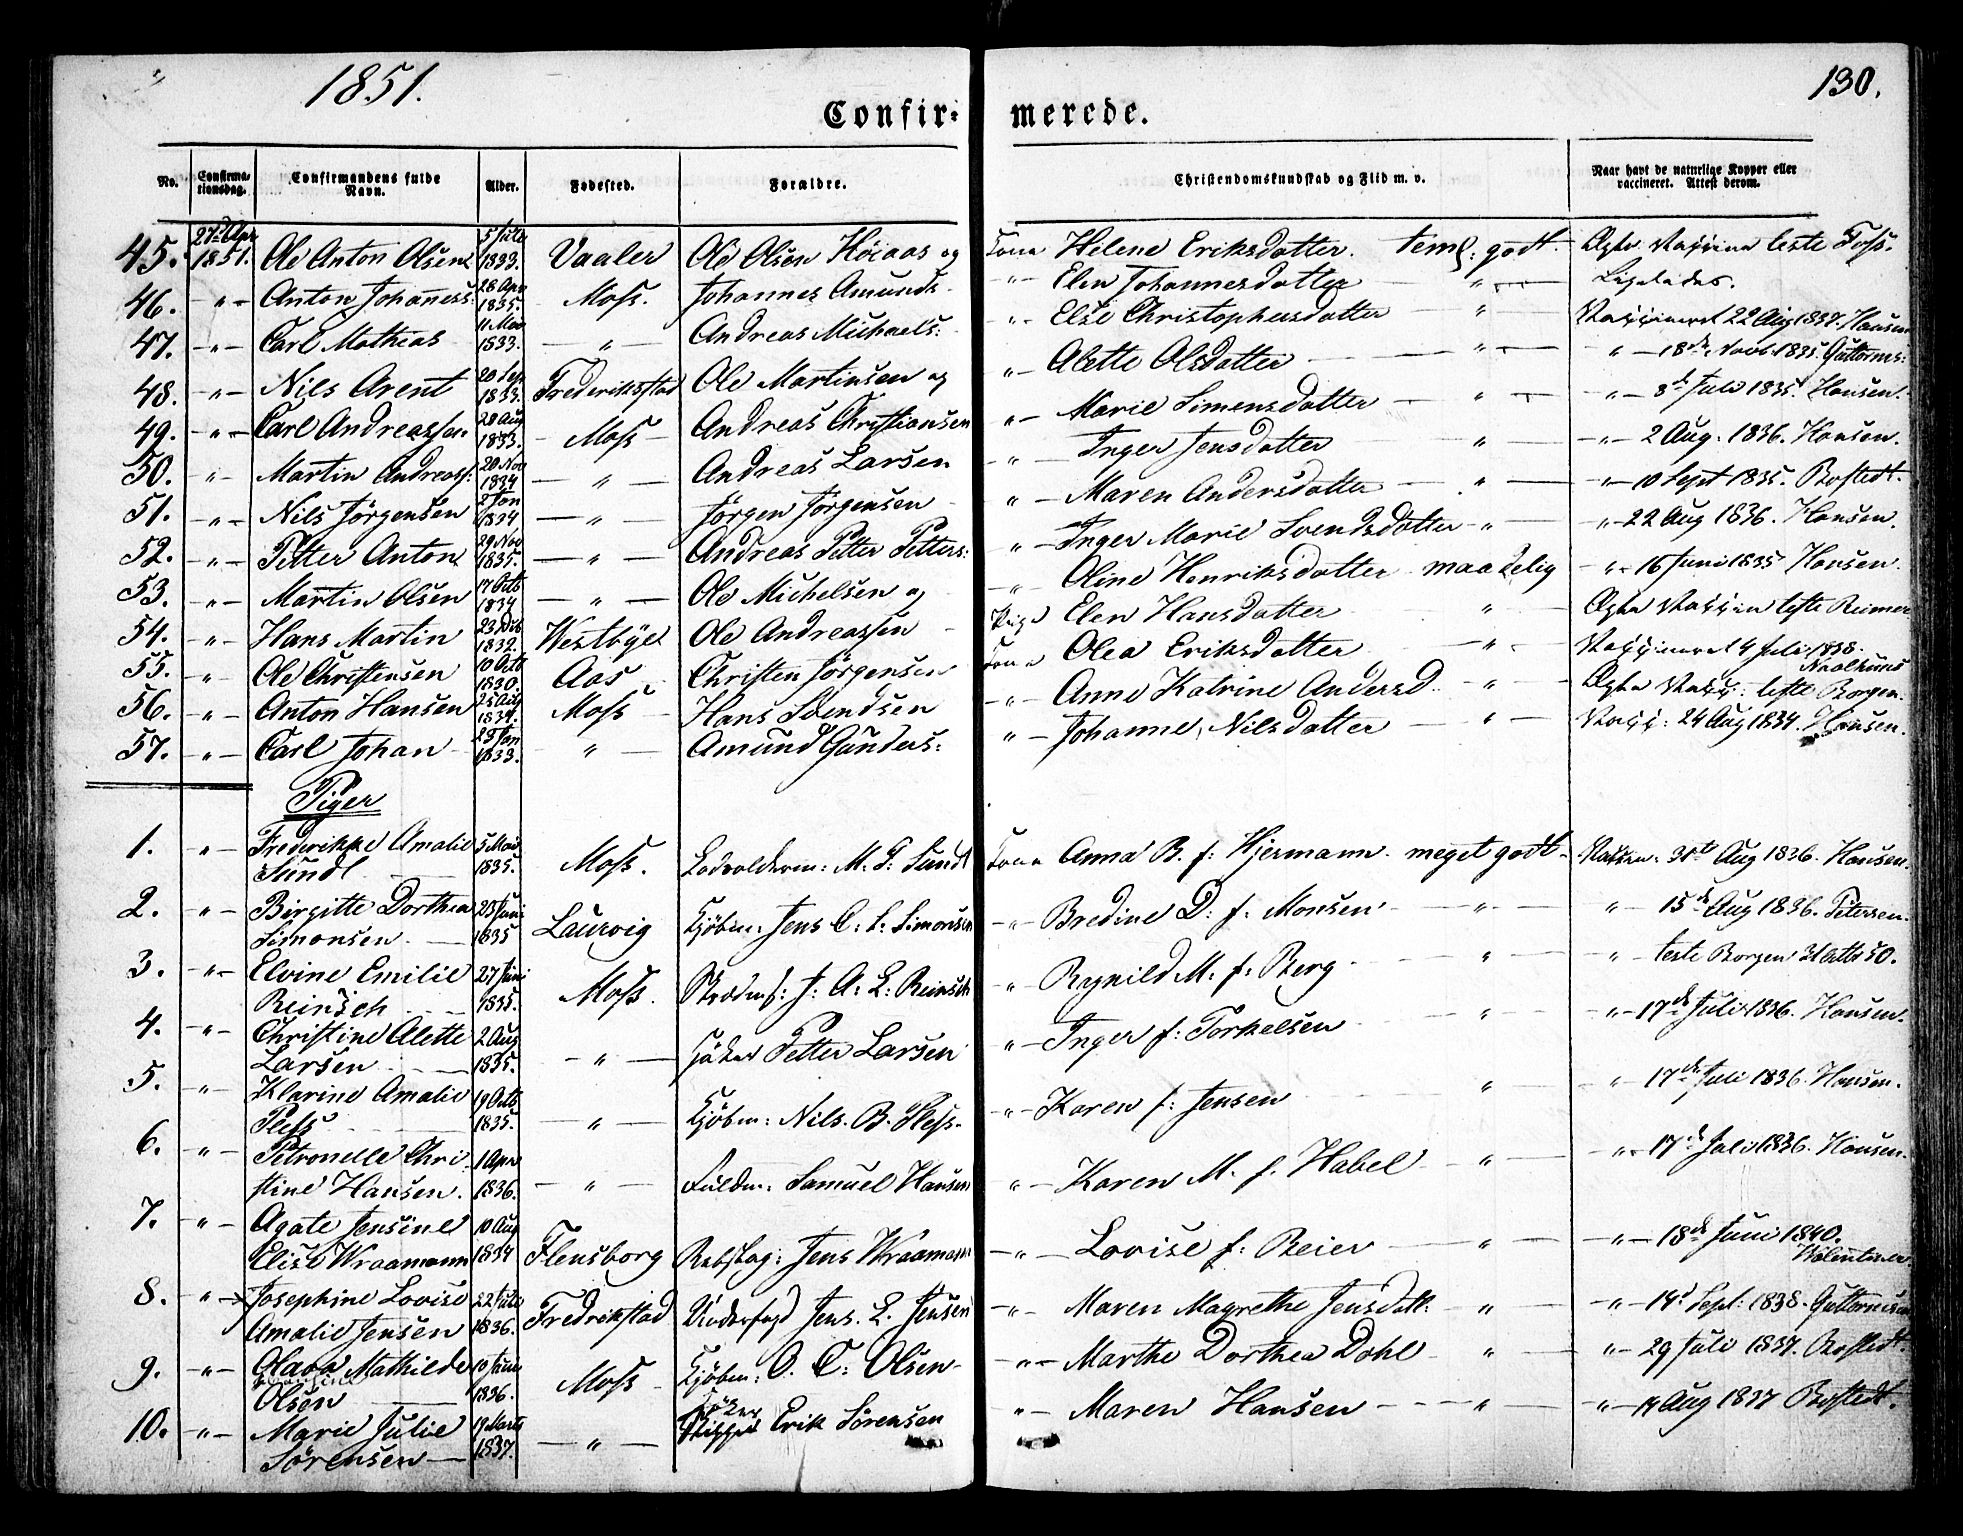 1851.
130.
Confir- merede.
No. Confirma-tionsdag. Confirmandens fulde Navn. Alder. Fødested. Forældre. Christendomskundskab og Flid m. v. Naar havt de naturlige Kopper eller vaccineret. Attest derom.
45. 27de Apr 1851. Ole Anton Olsen 5 Juli 1833. Vaaler Ole Olsen Høiaas og Kone Helene Eriksdatter. teml: godt. Ægte Vaxxine teste Foss.
46. " Anton Johaness: 28 Apr 1835. Moss. Johannes Amunds. " Elen Johannesdatter " Ligeledes.
47. " Carl Mathias 11 Mai 1833. " Andreas Michaels: " Else Christophersdatter " Vaxxineret 22 Aug 1837. Hansen
48. " Nils Arent 20 Sep 1833. Frederiksstad Ole Martinsen og " Alette Olsdatter " " 18de Novb. 1835. Guttorms:
49. " Carl Andreassen 28 Aug 1833. Moss Andreas Christiansen " Marie Simensdatter " " 3d Juli 1835. Hansen.
50. " Martin Andreass: 20 Nov 1834 " Andreas Larsen " Inger Jensdatter " " 2 Aug. 1836. Hansen.
51. " Nils Jørgensen 2 Jan 1834 " Jørgen Jørgensen " Maren Andersdatter " " 10 Sept 1835. Bostedt.
52. " Petter Anton 29 Nov 1835. " Andreas Petter Petters: " Inger Marie Svendsdatter " " 22 Aug 1836. Hansen.
53. " Martin Olsen 17 Octb 1834 " Ole Michelsen og " Oline Henriksdatter maadelig " 16 Juni 1835 Hansen.
54. " Hans Martin 23 Deb 1832. Westbye Ole Andreassen Pige Elen Hansdatter " Ægte Vaxxin teste Reimer
55. " Ole Christensen 10 Octb 1830. Aas Christen Jørgensen Kone Olea Eriksdatter " Vaxxineret 4 Juli 1838.
56. " Anton Hansen 25 Aug 1834. Moss Hans Svendsen " Anne Katrine Andersd. " Ægte Vaxx: teste Borgen.
57. " Carl Johan 28 Jan 1833. " Amund Gunders: " Johanne Nilsdatter " Vaxx: 24 Aug 1834. Hansen.
Piger
1. " Frederikke Amalie Sundt 5 Mai 1835. Moss. M. P. Sundt Kone Anna B. f: Hjermann. meget godt. Vaxxin: 31te Aug 1836. Hansen.
2. " Birgitte Dorthea Simonsen. 23 Juni 1835 Laurvig Kjøbm: Jens C. S. Simonsen " Bredine D: f: Monsen " " 15de Aug 1836. Petersen.
3. " Elvine Emilie Reinsch 27 Juni 1835. Moss. J: A: L: Reinsch " Ragnild M: f: Berg " " teste Borgen 31 Octb 50.
4. " Christine Alette Larsen 2 Aug 1835. " Petter Larsen " Inger f: Torkelsen " " 17de Juli 1836. Hansen.
5. " Klarine Amalie Pless 19 Octb 1835. " Kjøbm: Nils. B. Pless. " Karen f: Jensen " " 17de Juli 1836. Hansen.
6. " Petronelle Christine Hansen. 1 Apr 1836. " Fuldm: Samuel Hansen " Karen M. f. Habel " " 17de Juli 1836. Hansen.
7. " Agate Jensine Elise Wraamann 10 Aug 1834 Flensborg Rebslag: Jens Wraamann " Lovise f: Beier " " 18de Juni 1840.
8. " Josephine Lovise Amalie Jensen 22 Juli 1836. Fredrikstad Underfogd Jens. L. Jensen " Maren Magrethe Jensdatt. " " 14d Sept: 1838. Guttormsen
9. " Mathilde Olsen 10 Juni 1836. Moss Kjøbm: O. C: Olsen " Marthe Dorthea Dahl " " 29 Juli 1837. Bostedt.
10. " Marie Julie Sørensen 19 Marts 1837. " Skipper Erik Sørensen " Maren Hansen " " 14 Aug 1837 Bostedt.